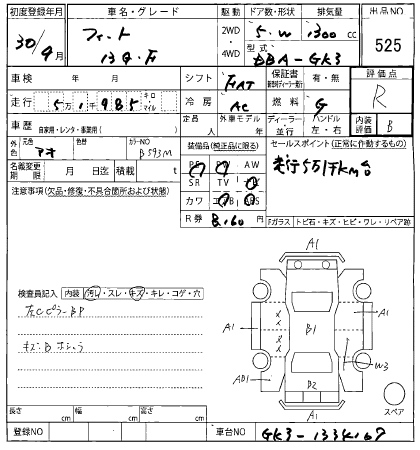 初度登録年月 車名・グレード 駆動 ドア数・形状 排気量 出品NO
30/9月 フィット 13G.F 2WD・4WD 5.W 1300 cc 525
型式 DBA-GK3
車検 年 月 シフト FAT 保証書 有・無 評価点 R
走行 5万1千985 キロ マイル 冷房 AC 燃料 G
車歴 自家用・レンタ・事業用( ) 定員 人 外車モデル 年 ディーラー・並行 ハンドル 左・右 内装評価 B
外色 元色 アオ 色替 カラーNO B593M 装備品(純正品に限る) セールスポイント(正常に作動するもの)
PS PW AW 走行5万1千km台
名義変更期限 月 日迄 積載 t SR TV
注意事項(欠品・修復・不具合箇所および状態) カワ ABS
R券 8,160円
Fガラス トビ石・キズ・ヒビ・ワレ・リペア跡
検査員記入 内装 汚レ・スレ・キズ・キレ・コゲ・穴
左Cピラー BP
キズB ホシュウ
A1
A1
A1
B1
W3
AB1
B2
A1
スペア
長さ cm 幅 cm 高さ cm
登録NO 車台NO GK3-